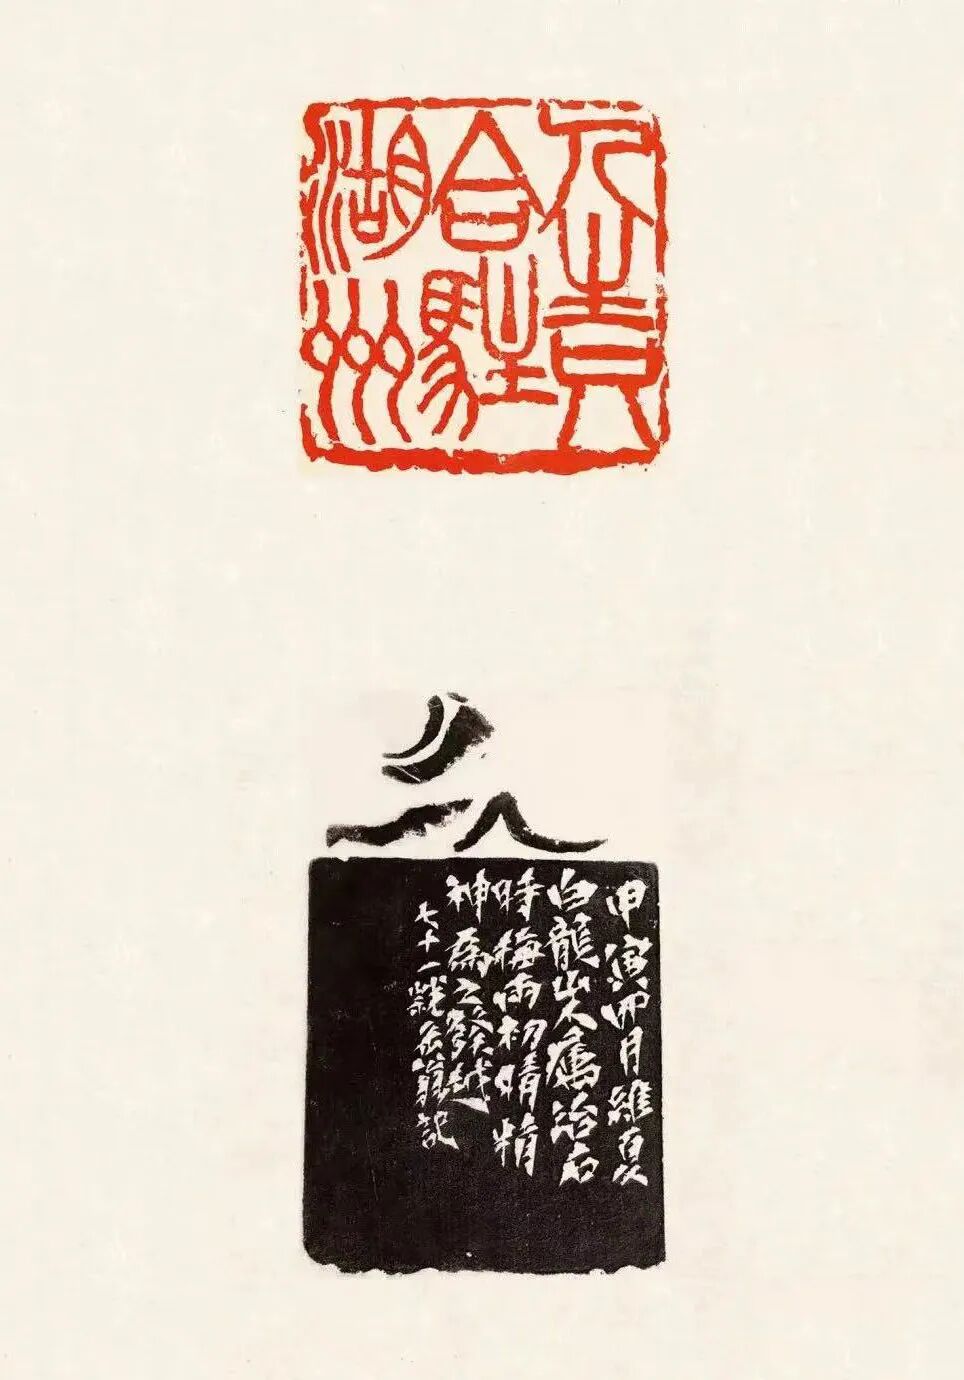 人生只
合駐
湖州
甲寅四月維夏
白龍山人屬治石
時梅雨初晴精
神為之發越
七十一歲缶翁記